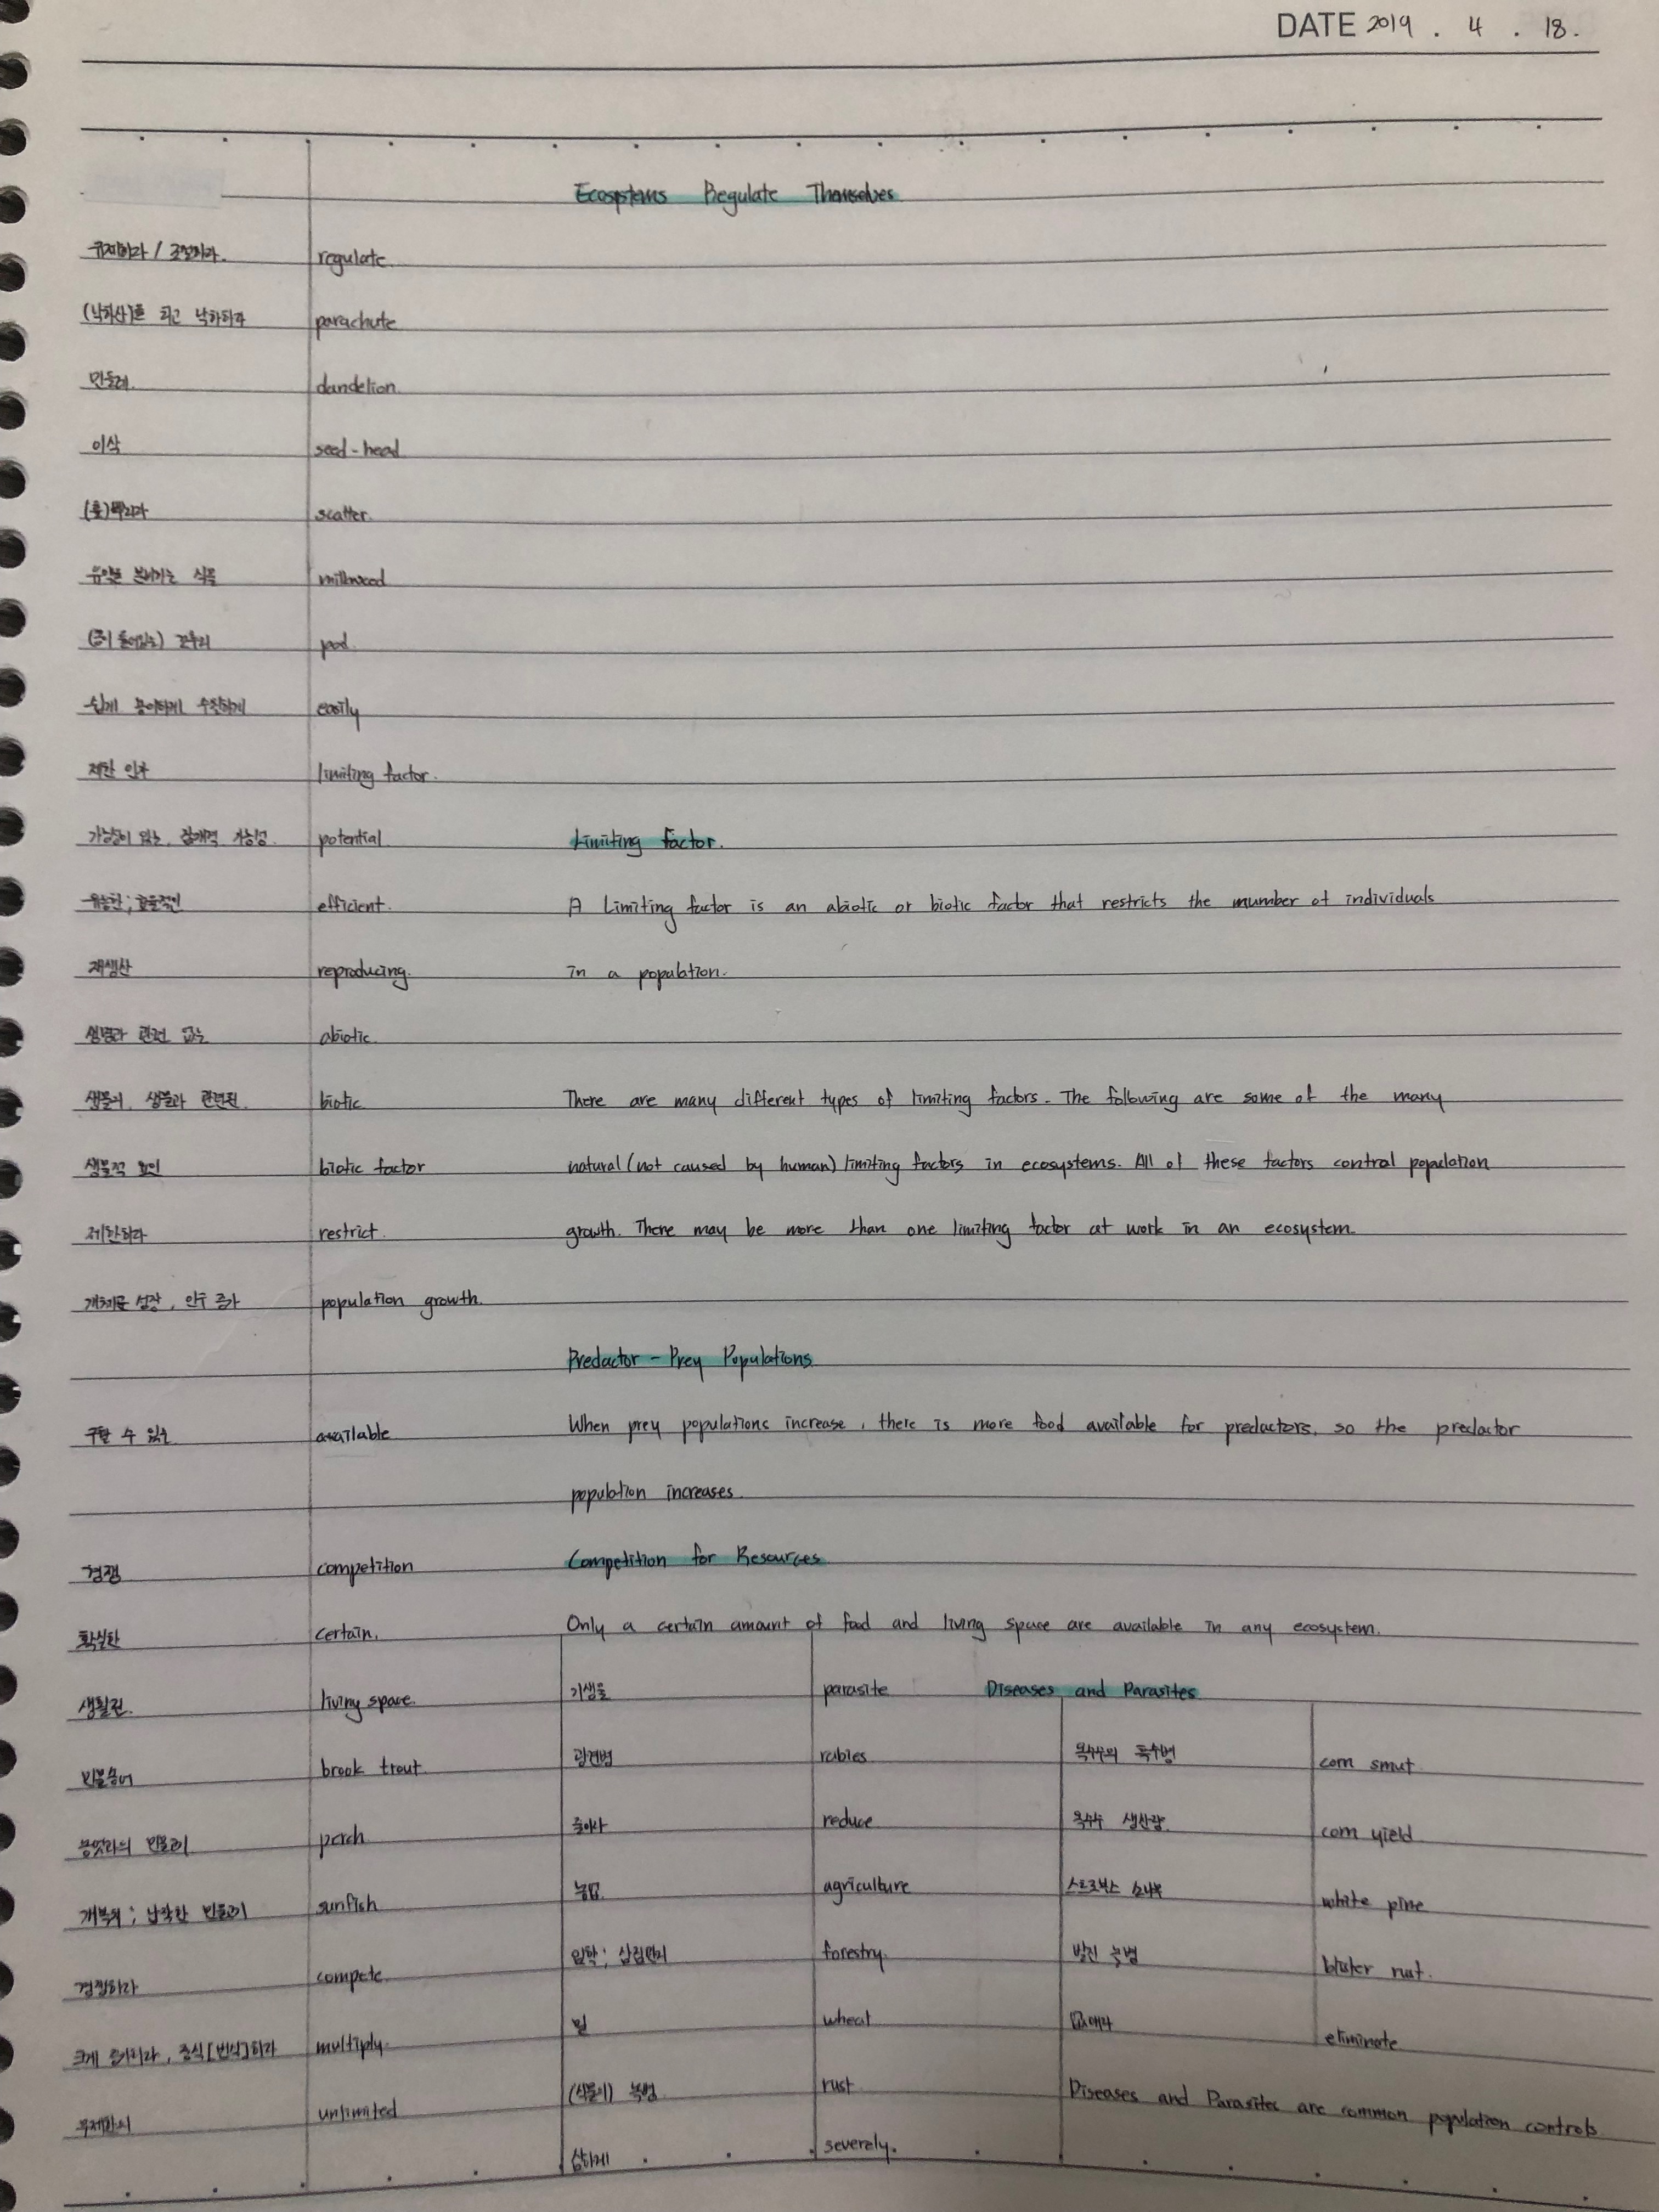 DATE 2019 . 4 . 18.
Ecosystems Regulate Themselves
규제하다 / 조절하다. regulate.
(낙하산)을 타고 낙하하다 parachute
민들레. dandelion.
이삭 seed-head
(흩)뿌리다 scatter.
유액을 분비하는 식물 milkweed
(콩이 들어있는) 꼬투리 pod.
쉽게 용이하게 수월하게 easily
제한 인자 limiting factor.
가능성이 있는, 잠재적 가능성. potential. Limiting factor.
유능한; 효율적인 efficient. A Limiting factor is an abiotic or biotic factor that restricts the mumber of individuals
재생산 reproducing. in a population.
생명과 관련 없는 abiotic.
생물의, 생물과 관련된. biotic. There are many different types of limiting factors. The following are some of the many
생물적 요인 biotic factor natural (not caused by human) limiting factors in ecosystems. All of these factors control population
제한하다 restrict. growth. There may be more than one limiting factor at work in an ecosystem.
개체군 성장, 인구 증가 population growth.
Predactor - Prey Populations
구할 수 있는 available When prey populations increase, there is more food available for predactors, so the predactor
population increases.
경쟁 competition Competition for Resources
확실한 certain. Only a certain amount of food and living space are available in any ecosystem.
생활권. living space. 기생물 parasite Diseases and Parasites
민물송어 brook trout 광견병 rabies. 옥수수의 흑수병 corn smut.
농엇과의 민물고기 perch 줄이다 reduce 옥수수 생산량. corn yield.
개복치; 납작한 민물고기 sunfish 농업. agriculture 스트로부스 소나무 white pine
경쟁하다 compete. 임학; 삼림관리 forestry. 발진 녹병 blister rust.
크게 증가하다, 증식[번식]하다 multiply. 밀 wheat 없애다 eliminate
무제한의 unlimited (식물의) 녹병. rust. Diseases and Parasites are common population controls.
심하게 severely.